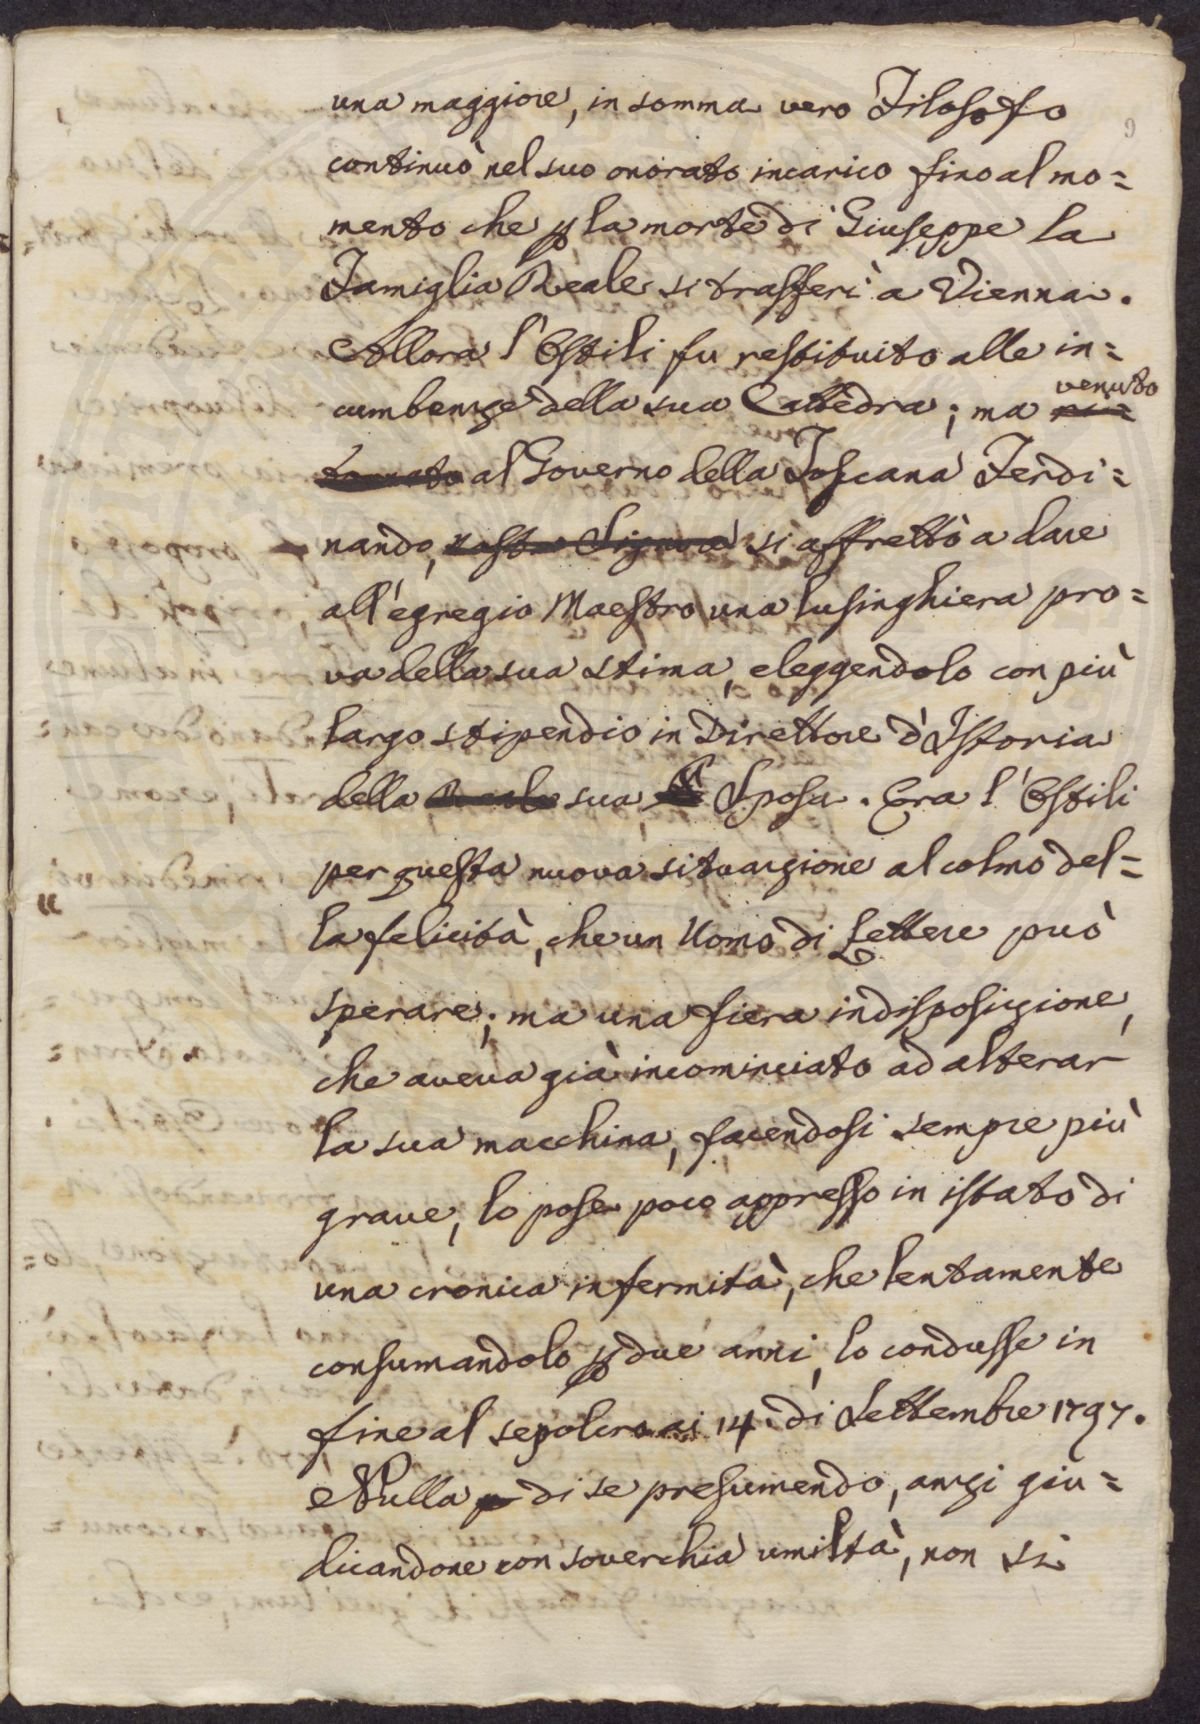 9
una maggiore, in somma vero Filosofo
continuò nel suo onorato incarico fino al mo=
mento che p la morte di Giuseppe la
Famiglia Reale si trasferì à Vienna.
Allora l'Ostili fu restituito alle in=
venuto
cumbenze della sua Cattedra; ma ri=
tornato al Governo della Toscana Ferdi=
nando, nostro Signore si affrettò a dare
all'egregio Maestro una lusinghiera pro=
va della sua stima, eleggendolo con più
largo stipendio in Direttore d'Istoria
della Reale sua Sposa. Era l'Ostili
per questa nuova situazione al colmo del=
la felicità, che un Uomo di Lettere può
sperare; ma una fiera indisposizione,
che aveva già incominciato ad alterar
la sua macchina, facendosi sempre più
grave, lo pose poco appresso in istato di
una cronica infermità, che lentamente
consumandolo p due anni, lo condusse in
fine al sepolcro ai 14. di Settembre 1797.
Nulla di se presumendo, anzi giu=
dicandone con soverchia umiltà, non si